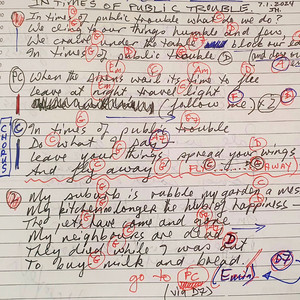 IN TIMES OF PUBLIC TROUBLE. 7.1.2024
① In times of public trouble what do we do?
We cling to our things humble and few
We crawl under the table block our
In times of public trouble D
PC When the sirens wail its time to
leave at night travel light
(follow me) x2
CHORUS
C In times of public trouble
Do what I say
leave your things, spread your wings
And fly away FL AWAY)
② My suburb is rubble my garden a mess
My kitchen no longer the hub of happiness
The pets have come and gone
My neighbours are dead
They died while I was out
To buy milk and bread.
go to PC (Em in) D7
(via D7)